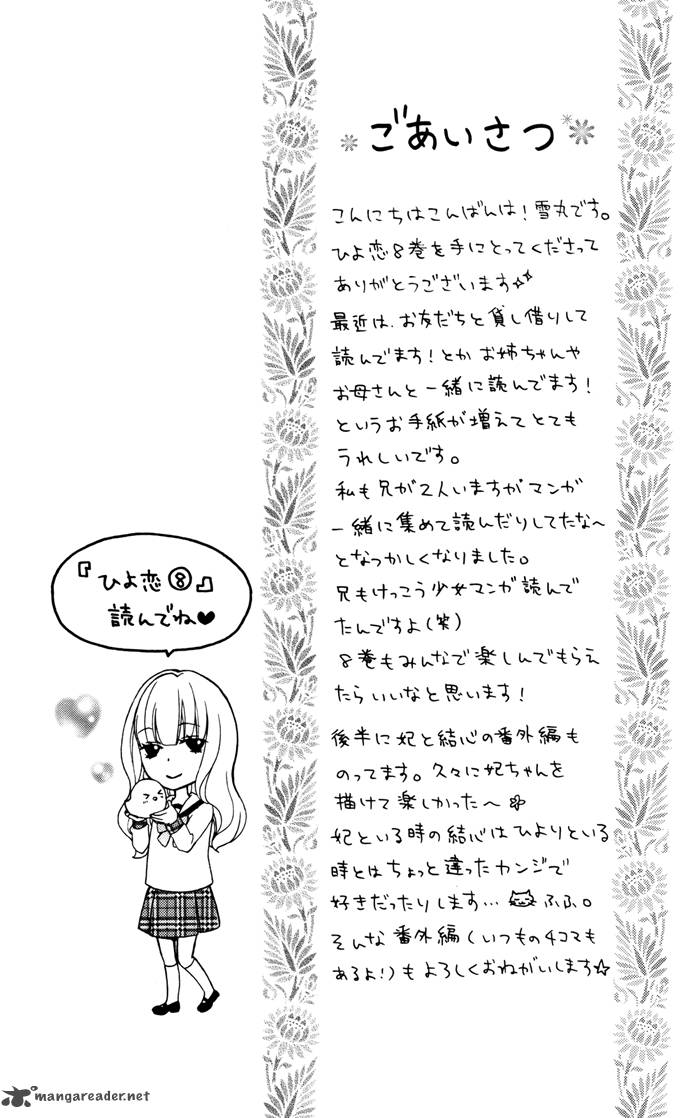 ごあいさつ
こんにちはこんばんは！雪丸です。
ひよ恋8巻を手にとってくださって
ありがとうございます☆
最近は、お友だちと貸し借りして
読んでます！とか お姉ちゃんや
お母さんと一緒に読んでます！
というお手紙が増えてとても
うれしいです。
私も兄が2人いますがマンガ
一緒に集めて読んだりしてたな〜
となつかしくなりました。
兄もけっこう少女マンガ読んで
たんですよ（笑）
8巻もみんなで楽しんでもらえ
たらいいなと思います！
後半に妃と結心の番外編も
のってます。久々に妃ちゃんを
描けて楽しかった〜
妃といる時の結心はひよりといる
時とはちょっと違ったカンジで
好きだったりします… ふふ。
そんな番外編（いつもの4コマも
あるよ！）もよろしくおねがいします☆
『ひよ恋⑧』
読んでね♥
mangareader.net